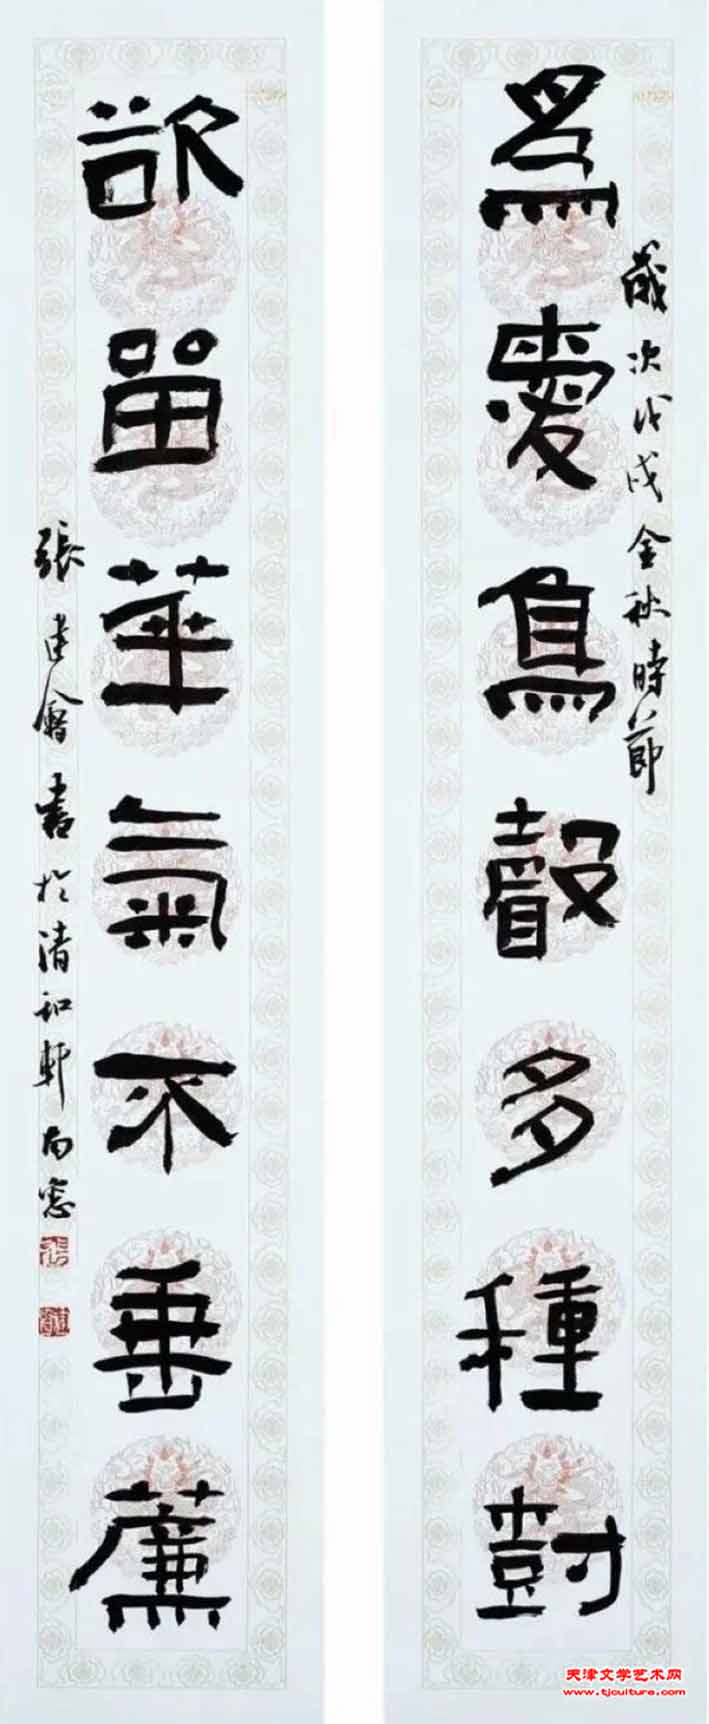 為愛鳥聲多種樹
歲次戊戌金秋時節
欲留華氣不垂簾
張建會書於清和軒南窗
天津文学艺术网
www.tjculture.com